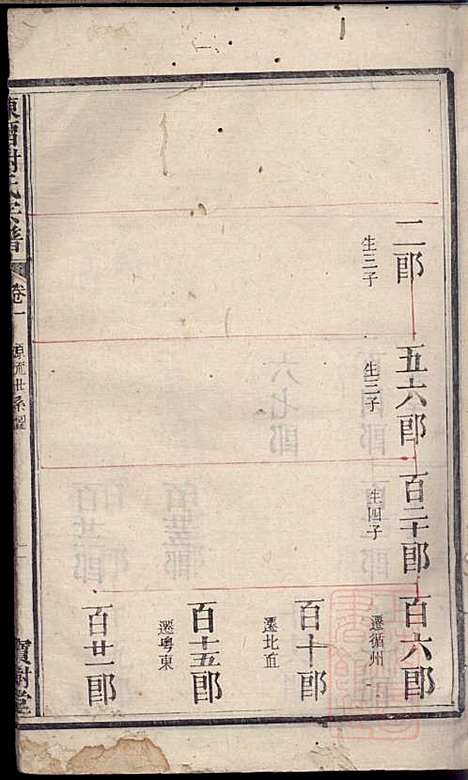 二郎
生三子
五六郎
生三子
百二十郎
生四子
百六郎
遷循州
百十郎
遷北直
百十五郎
遷粵東
百廿一郎
謝氏宗譜
卷一
源流世系圖
寶樹堂